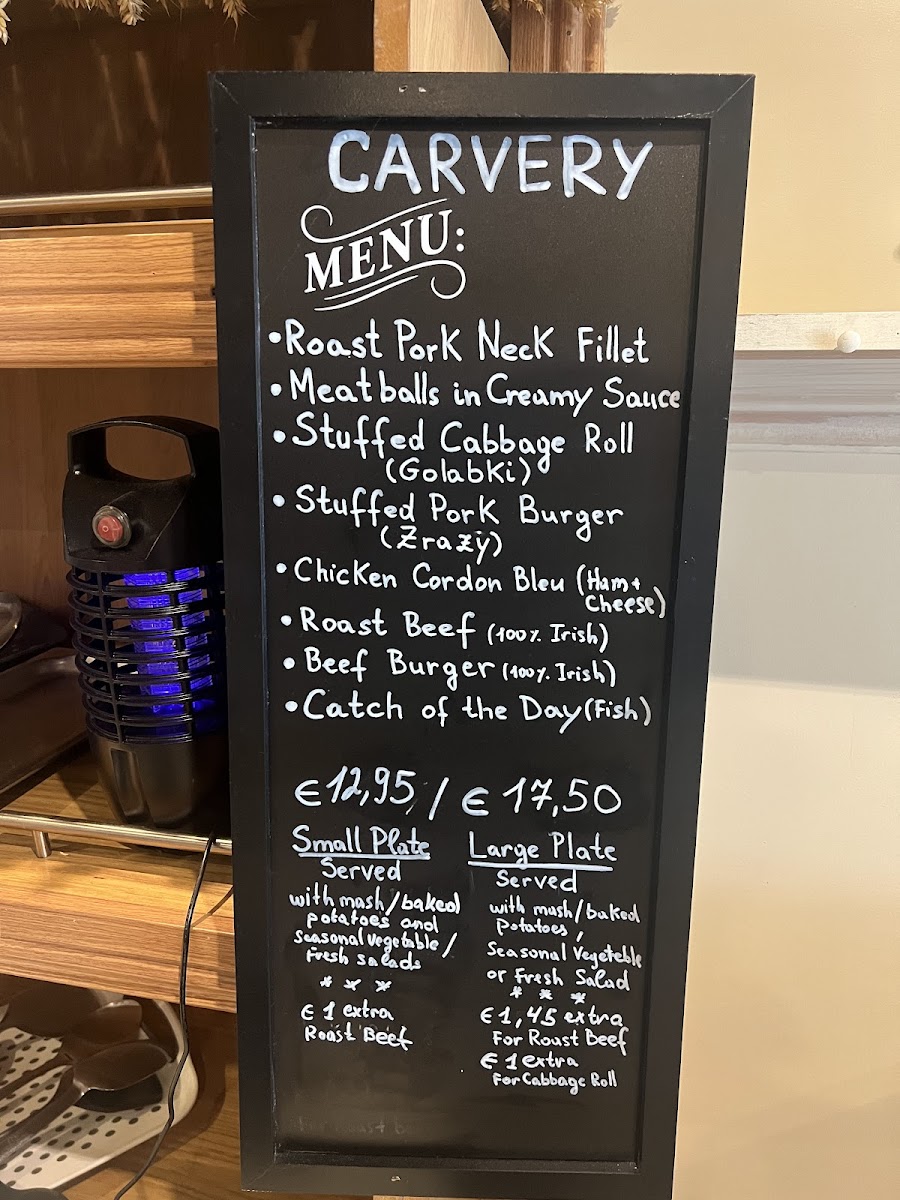 CARVERY
MENU:
• Roast Pork Neck Fillet
• Meatballs in Creamy Sauce
• Stuffed Cabbage Roll
(Golabki)
• Stuffed Pork Burger
(Zrazy)
• Chicken Cordon Bleu (Ham+
Cheese)
• Roast Beef (100% Irish)
• Beef Burger (100% Irish)
• Catch of the Day (Fish)
€12,95 / €17,50
Small Plate
Served
with mash/baked
potatoes and
seasonal vegetable/
Fresh salads
* * *
€1 extra
Roast Beef
Large Plate
Served
with mash/baked
potatoes,
Seasonal Vegeteble
or Fresh Salad
* * *
€1,45 extra
For Roast Beef
€1 extra
For Cabbage Roll